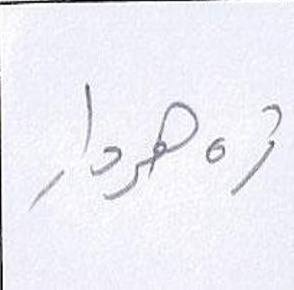 زه هردار